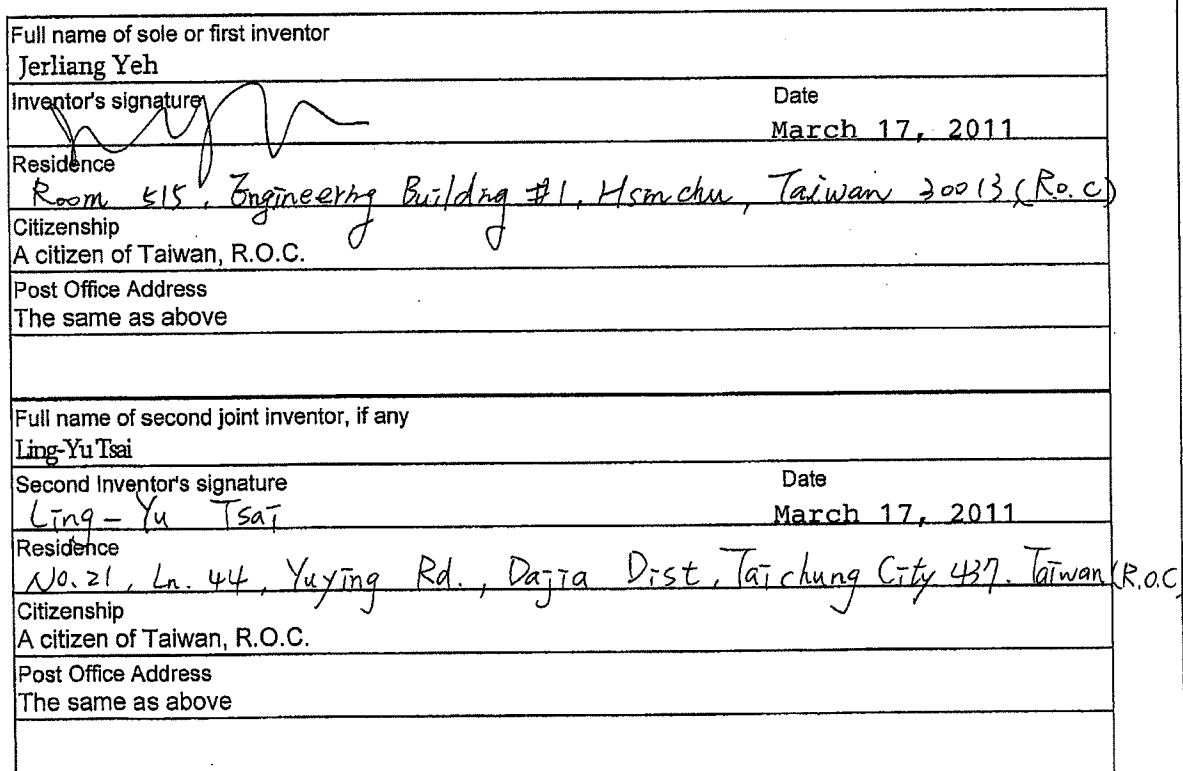 Full name of sole or first inventor
Jerliang Yeh
Inventor's signature Date
March 17, 2011
Residence
Room 515, Engineering Building #1, Hsinchu, Taiwan 30013 (R.o.C)
Citizenship
A citizen of Taiwan, R.O.C.
Post Office Address
The same as above
Full name of second joint inventor, if any
Ling-Yu Tsai
Second Inventor's signature Date
Ling-Yu Tsai March 17, 2011
Residence
No. 21, Ln. 44, Yuying Rd., Dajia Dist, Taichung City 437. Taiwan (R.o.C
Citizenship
A citizen of Taiwan, R.O.C.
Post Office Address
The same as above